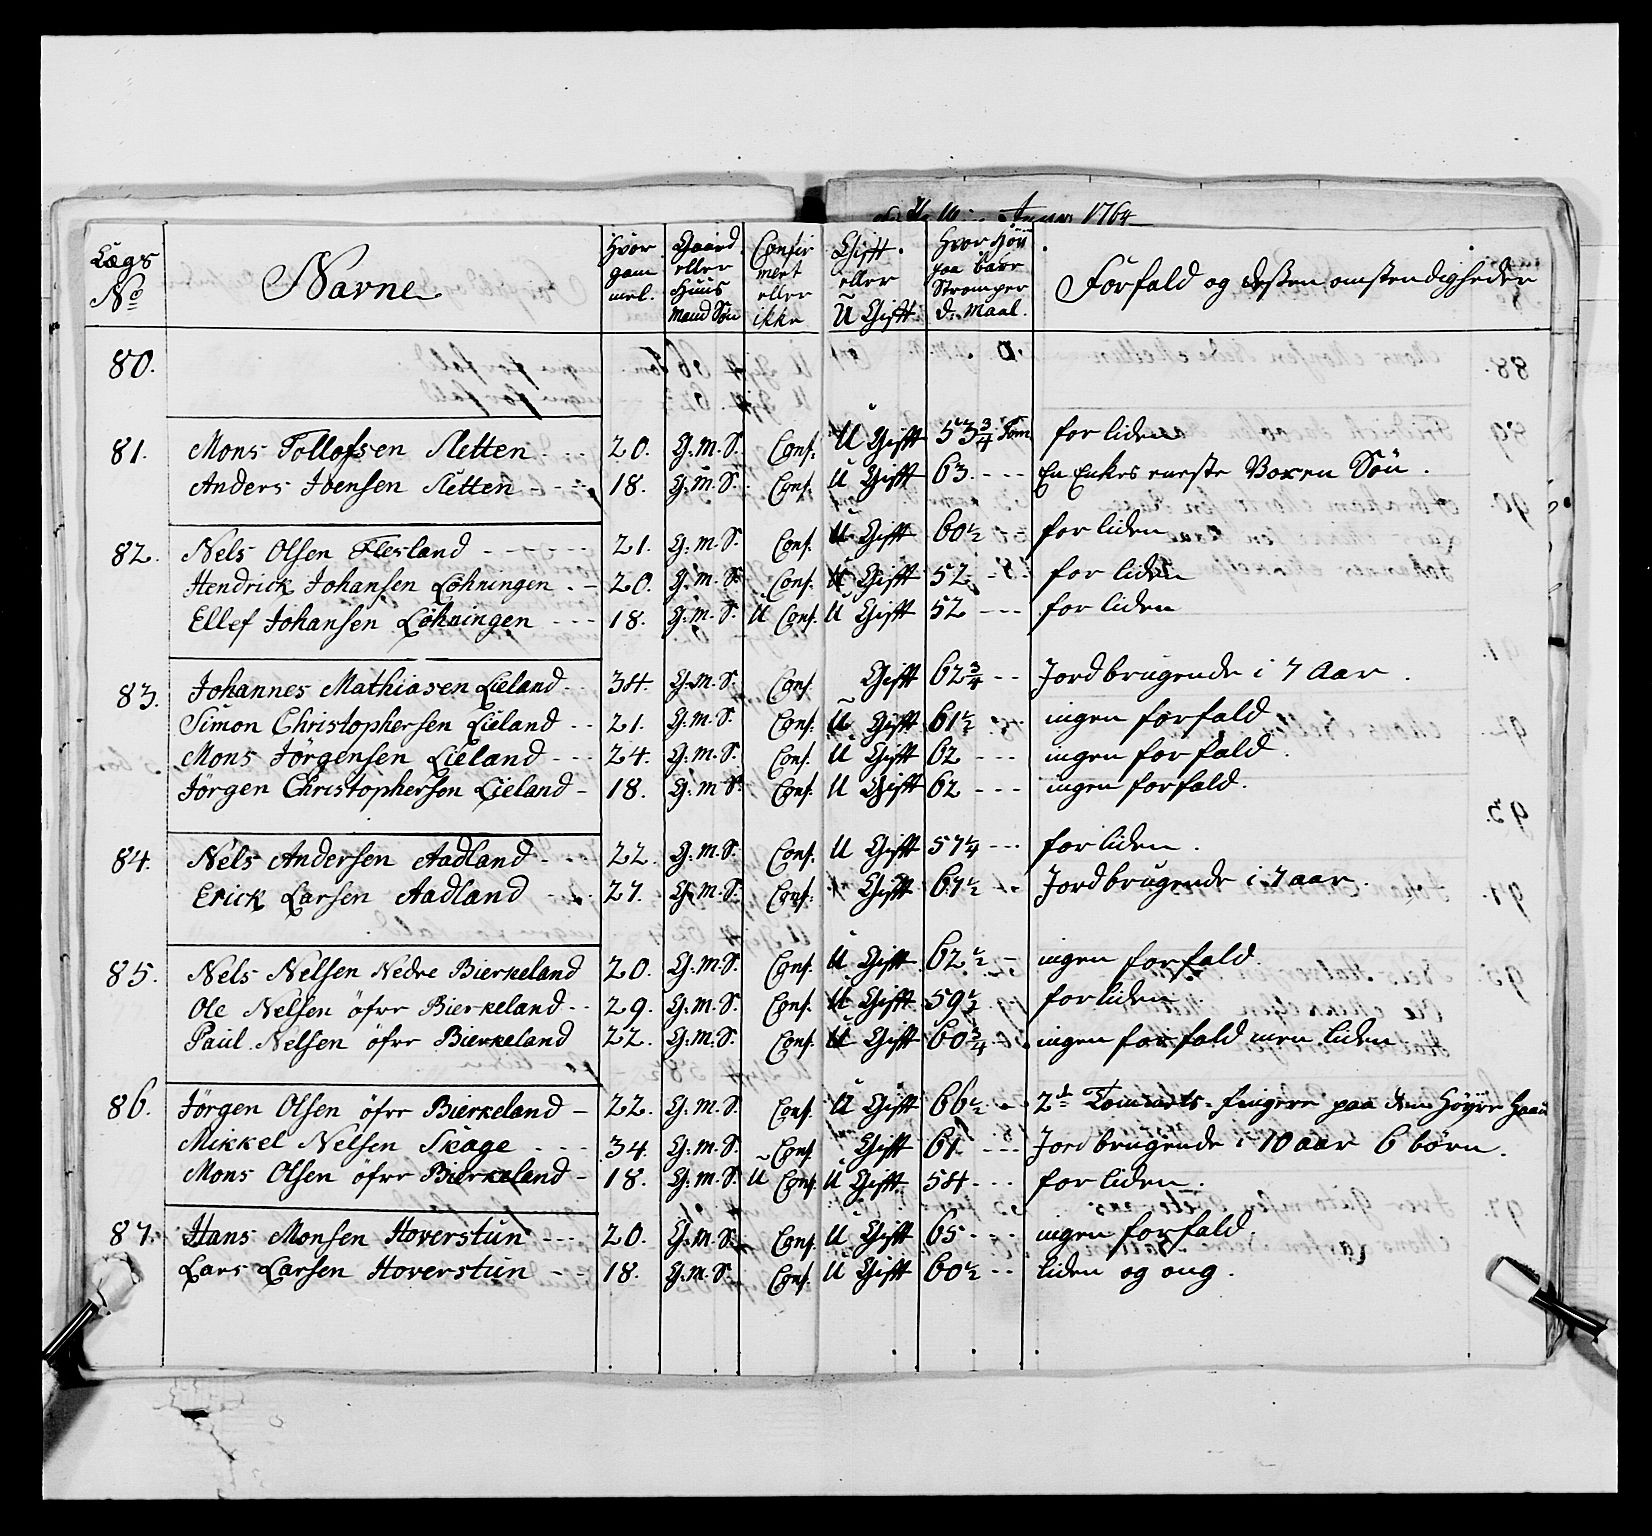 Anno 1764
Lægs No | Navne | Hvor gam mel. | Gaard eller Huus Mand Søn | Confir meert eller ikke | Gift eller U Gift | Hvor Höy paa bare Strømper d. Maal. | Forfald og deßen omstendigheder
80.
81. Mons Tollofsen Sletten 20. G. M. S. Conf. U Gift 53 3/4 Tom for liden
Anders Joensen Sletten 18. G. M. S. Conf. U Gift 63 En Enkes eneste Voxen Søn.
82. Nels Olsen Flesland 21. G. M. S. Conf. U Gift 60 1/2 for liden
Hendrick Johansen Löhningen 20. G. M. S. Conf. U Gift 52 for liden
Ellef Johansen Löhningen 18. G. M. S. U Conf. U Gift 52 for liden
83. Johannes Mathiasen Lieland 34. G. M. S. Conf. Gift 62 3/4 Jordbrugende i 7 Aar.
Simon Christophersen Lieland 21. G. M. S. Conf. U Gift 61 1/2 ingen forfald
Mons Jörgensen Lieland 24. G. M. S. Conf. U Gift 62 ingen forfald.
Jörgen Christophersen Lieland 18. G. M. S. Conf. U Gift 62 ingen forfald.
84. Nels Andersen Aadland 22. G. M. S. Conf. U Gift 57 1/4 for liden.
Erick Larsen Aadland 27. G. M. S. Conf. Gift 67 1/2 Jordbrugende i 7 aar.
85. Nels Nelsen Nedre Bierkeland 20. G. M. S. Conf. U Gift 62 1/2 ingen forfald.
Ole Nelsen öfre Bierkeland 29. G. M. S. Conf. U Gift 59 1/2 for liden
Paul Nelsen öfre Bierkeland 22. G. M. S. Conf. U Gift 60 3/4 ingen forfald men liden
86. Jörgen Olsen öfre Bierkeland 22. G. M. S. Conf. U Gift 66 1/2 2de fingere paa den Höyre Haan
Mikkel Nelsen Skage 34. G. M. S. Conf. Gift 61 Jordbrugende i 10 aar 6 börn.
Mons Olsen öfre Bierkeland 18. G. M. S. U Conf. U Gift 54 for liden.
87. Hans Monsen Hoverstun 20. G. M. S. Conf. U Gift 65 ingen forfald.
Lars Larsen Hoverstun 18. G. M. S. Conf. U Gift 60 1/2 liden og ung.